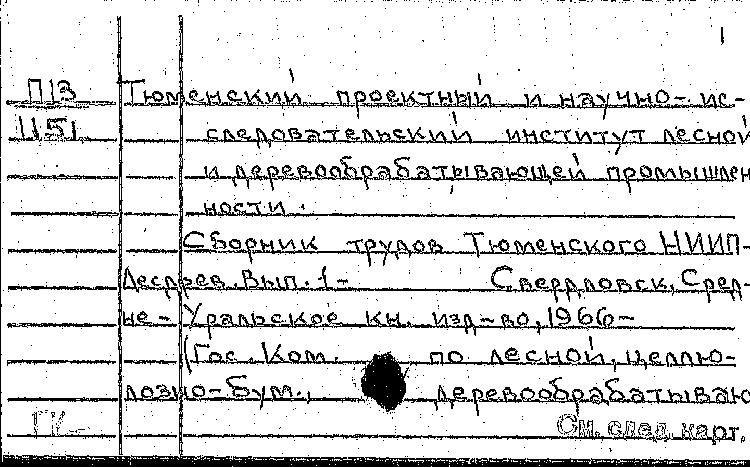 П13 Тюменский проектный и научно-ис-
1151 следовательский институт лесной
и деревообрабатывающей промышлен
ности.
Сборник трудов Тюменского НИИП-
Лесдрев. Вып. 1- Свердловск, Сред-
не-Уральское кн. изд-во, 1966-
(Гос. Ком. по лесной, целлю-
лозно-бум., деревообрабатываю
ГК- См. след. карт.